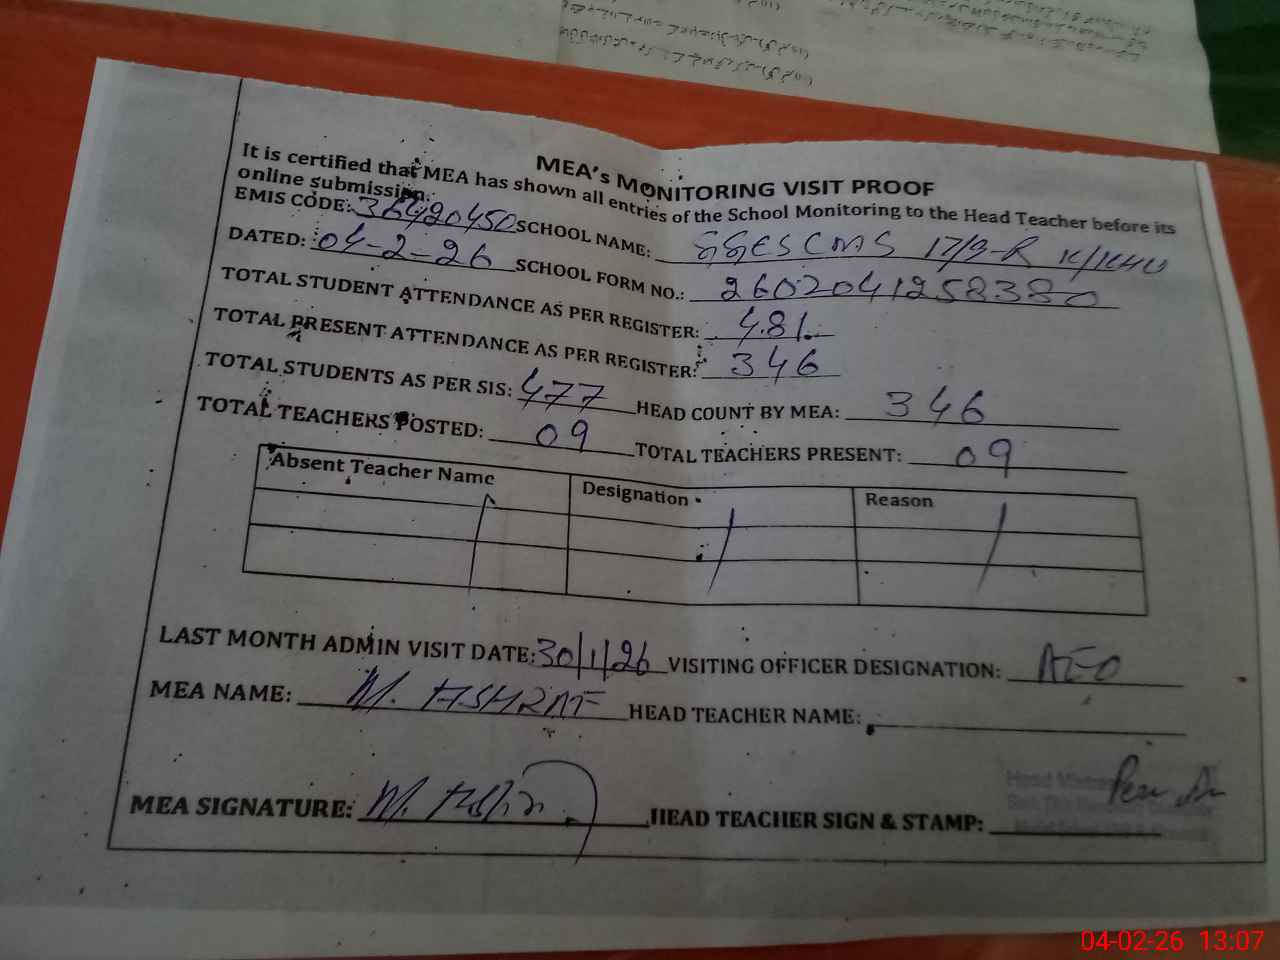 MEA's MONITORING VISIT PROOF
It is certified that MEA has shown all entries of the School Monitoring to the Head Teacher before its
online submission.
EMIS CODE: 36420450 SCHOOL NAME: GGES CMS 17/9-R K/KHU
DATED: 04-2-26 SCHOOL FORM NO.: 2602041258380
TOTAL STUDENT ATTENDANCE AS PER REGISTER: 481
TOTAL PRESENT ATTENDANCE AS PER REGISTER: 346
TOTAL STUDENTS AS PER SIS: 477 HEAD COUNT BY MEA: 346
TOTAL TEACHERS POSTED: 09 TOTAL TEACHERS PRESENT: 09
Absent Teacher Name Designation Reason
LAST MONTH ADMIN VISIT DATE: 30/1/26 VISITING OFFICER DESIGNATION: AEO
MEA NAME: M. ASHRAF HEAD TEACHER NAME:
MEA SIGNATURE: HEAD TEACHER SIGN & STAMP:
04-02-26 13:07